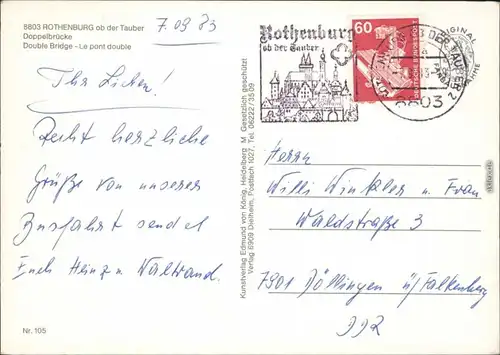 8803 ROTHENBURG ob der Tauber
Doppelbrücke
Double Bridge - Le pont double
7.09.83
Ihr Lieben!
Recht herzliche
Grüße von unserer
Busfahrt sendet
Euch Heinz u. Waltraud.
Nr. 105
Kunstverlag Edmund von König, Heidelberg M Gesetzlich geschützt
Verlag 6909 Dielheim, Postfach 1027, Tel. 06222/73509
Rothenburg
ob der Tauber
60
DEUTSCHE BUNDESPOST
DER TAUBER 2
8803
ORIGINAL
Herrn
Willi Winkler u. Frau
Waldstraße 3
7901 Döllingen ü/Falkenberg
DDR